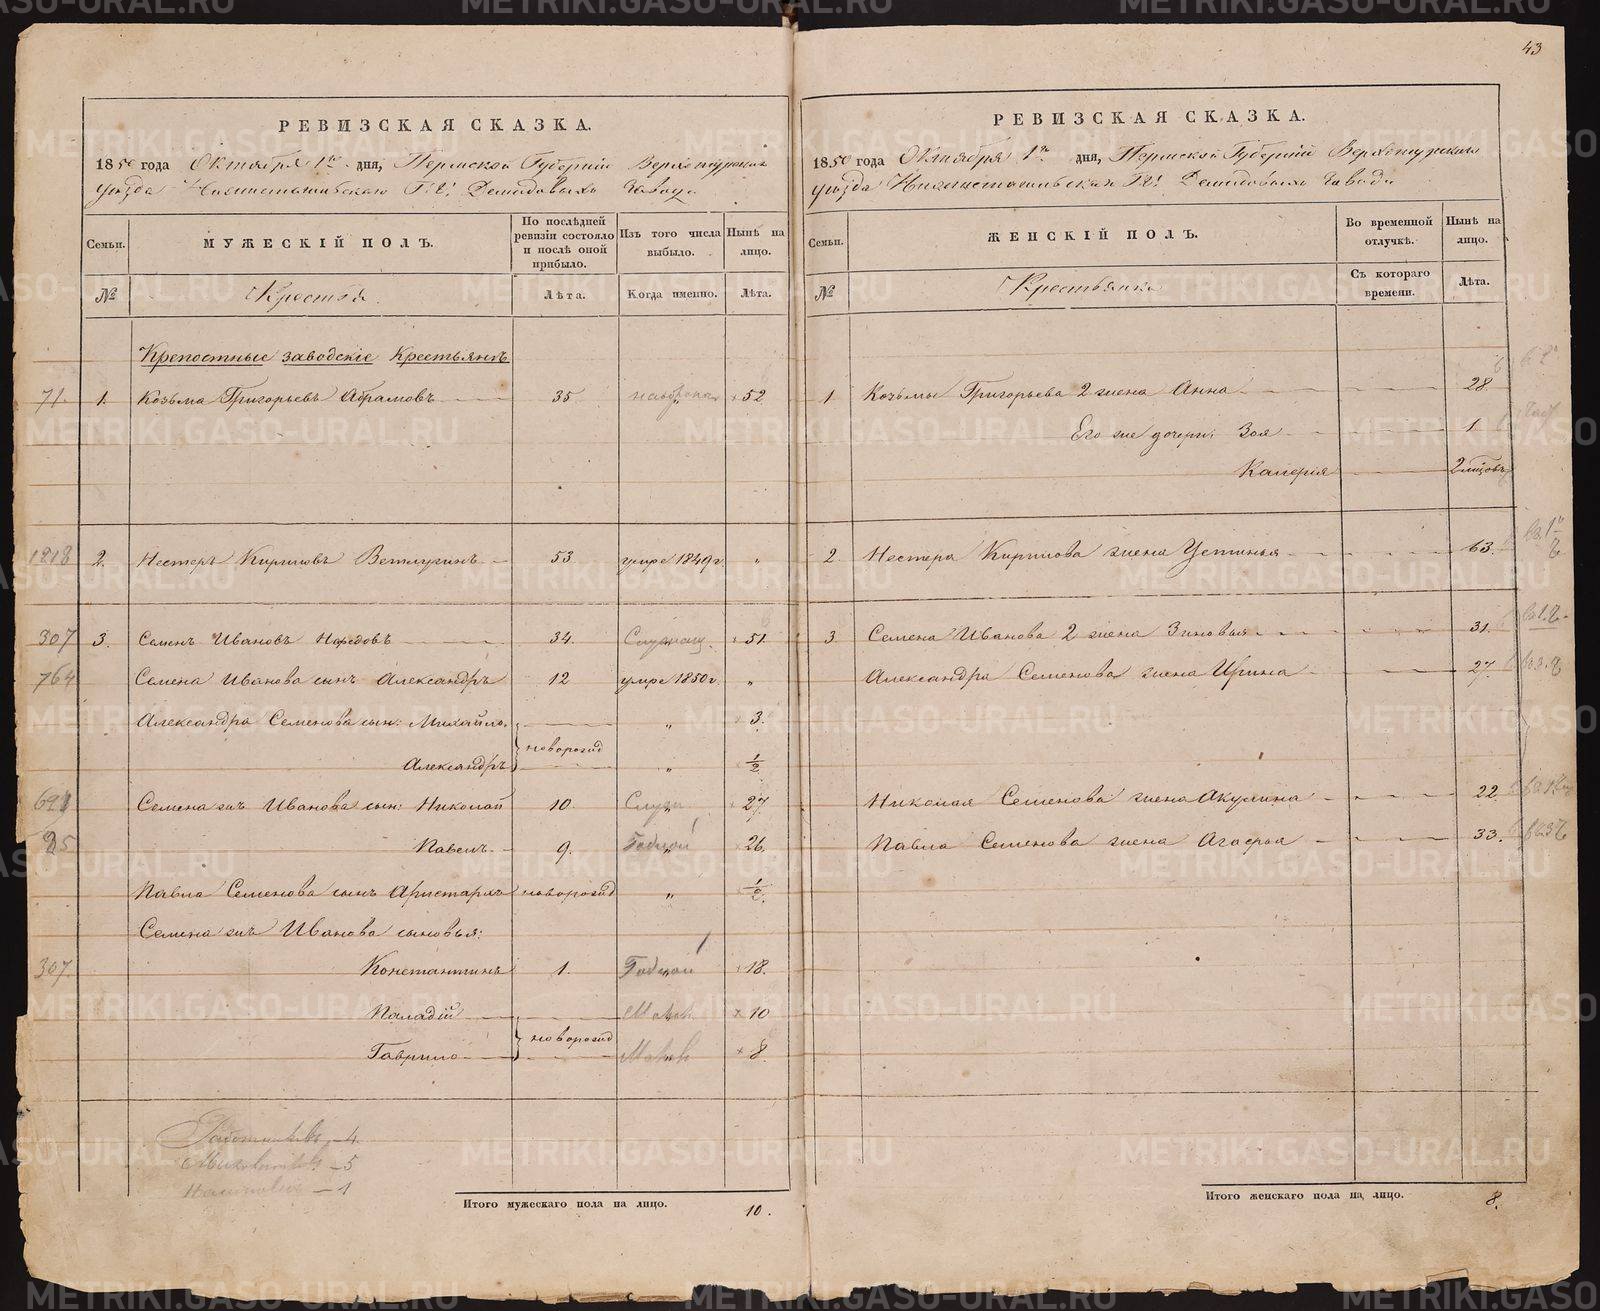 43
РЕВИЗСКАЯ СКАЗКА.
1850 года Октября 1го дня, Пермской Губерніи Верхотурскаго
уѣзда Нижнетагильскаго Г.г. Демидовыхъ Завода
Семьи. МУЖЕСКІЙ ПОЛЪ. По послѣдней ревизіи состояло и послѣ оной прибыло. Изъ того числа выбыло. Нынѣ на лицо.
№ Крестьяне Лѣта. Когда именно. Лѣта.
Крепостные заводскіе Крестьяне
71 1. Козьма Григорьевъ Абрамовъ 35 52
1818 2. Нестеръ Кириловъ Ветлугинъ 53 умре 1849 г. "
307 3. Семенъ Ивановъ 34. 51.
764 Семена Иванова сынъ Александръ 12 умре 1850 г. "
Александра Семенова сын: Михайло " 3.
новорожд
Александръ " 1/2
Семена жъ Иванова сын: Николай 10. 27
Павелъ 9. Годной 26.
Павла Семенова сынъ Аристархъ новорожд " 1/2.
Семена жъ Иванова сыновья:
307. Константинъ 1. Годной 18.
Паладій 10
новорожд
Гаврило 8.
Работниковъ 4
5
1
Итого мужескаго пола на лицо. 10.
РЕВИЗСКАЯ СКАЗКА.
1850 года Октября 1го дня, Пермской Губерніи Верхотурскаго
уѣзда Нижнетагильскаго Г.г. Демидовыхъ Завода
Семьи. ЖЕНСКІЙ ПОЛЪ. Во временной отлучкѣ. Нынѣ на лицо.
№ Крестьянки Съ котораго времени. Лѣта.
1 Козьмы Григорьева 2 жена Анна 28
Его же дочери: Зоя 1
Калерія 2 мѣсяцовъ
2. Нестера Кирилова жена Устинья 63.
3 Семена Иванова 2 жена Зиновья 31.
Александра Семенова жена Ирина 27.
Николая Семенова жена Акулина 22
Павла Семенова жена Агафья 33.
Итого женскаго пола на лицо. 8.
METRIKI.GASO-URAL.RU